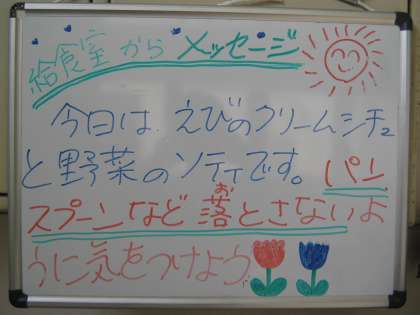 給食室からメッセージ
今日は、えびのクリームシチュ
と野菜のソティです。パン、
スプーンなど落とさないよ
お
うに気をつけよう。